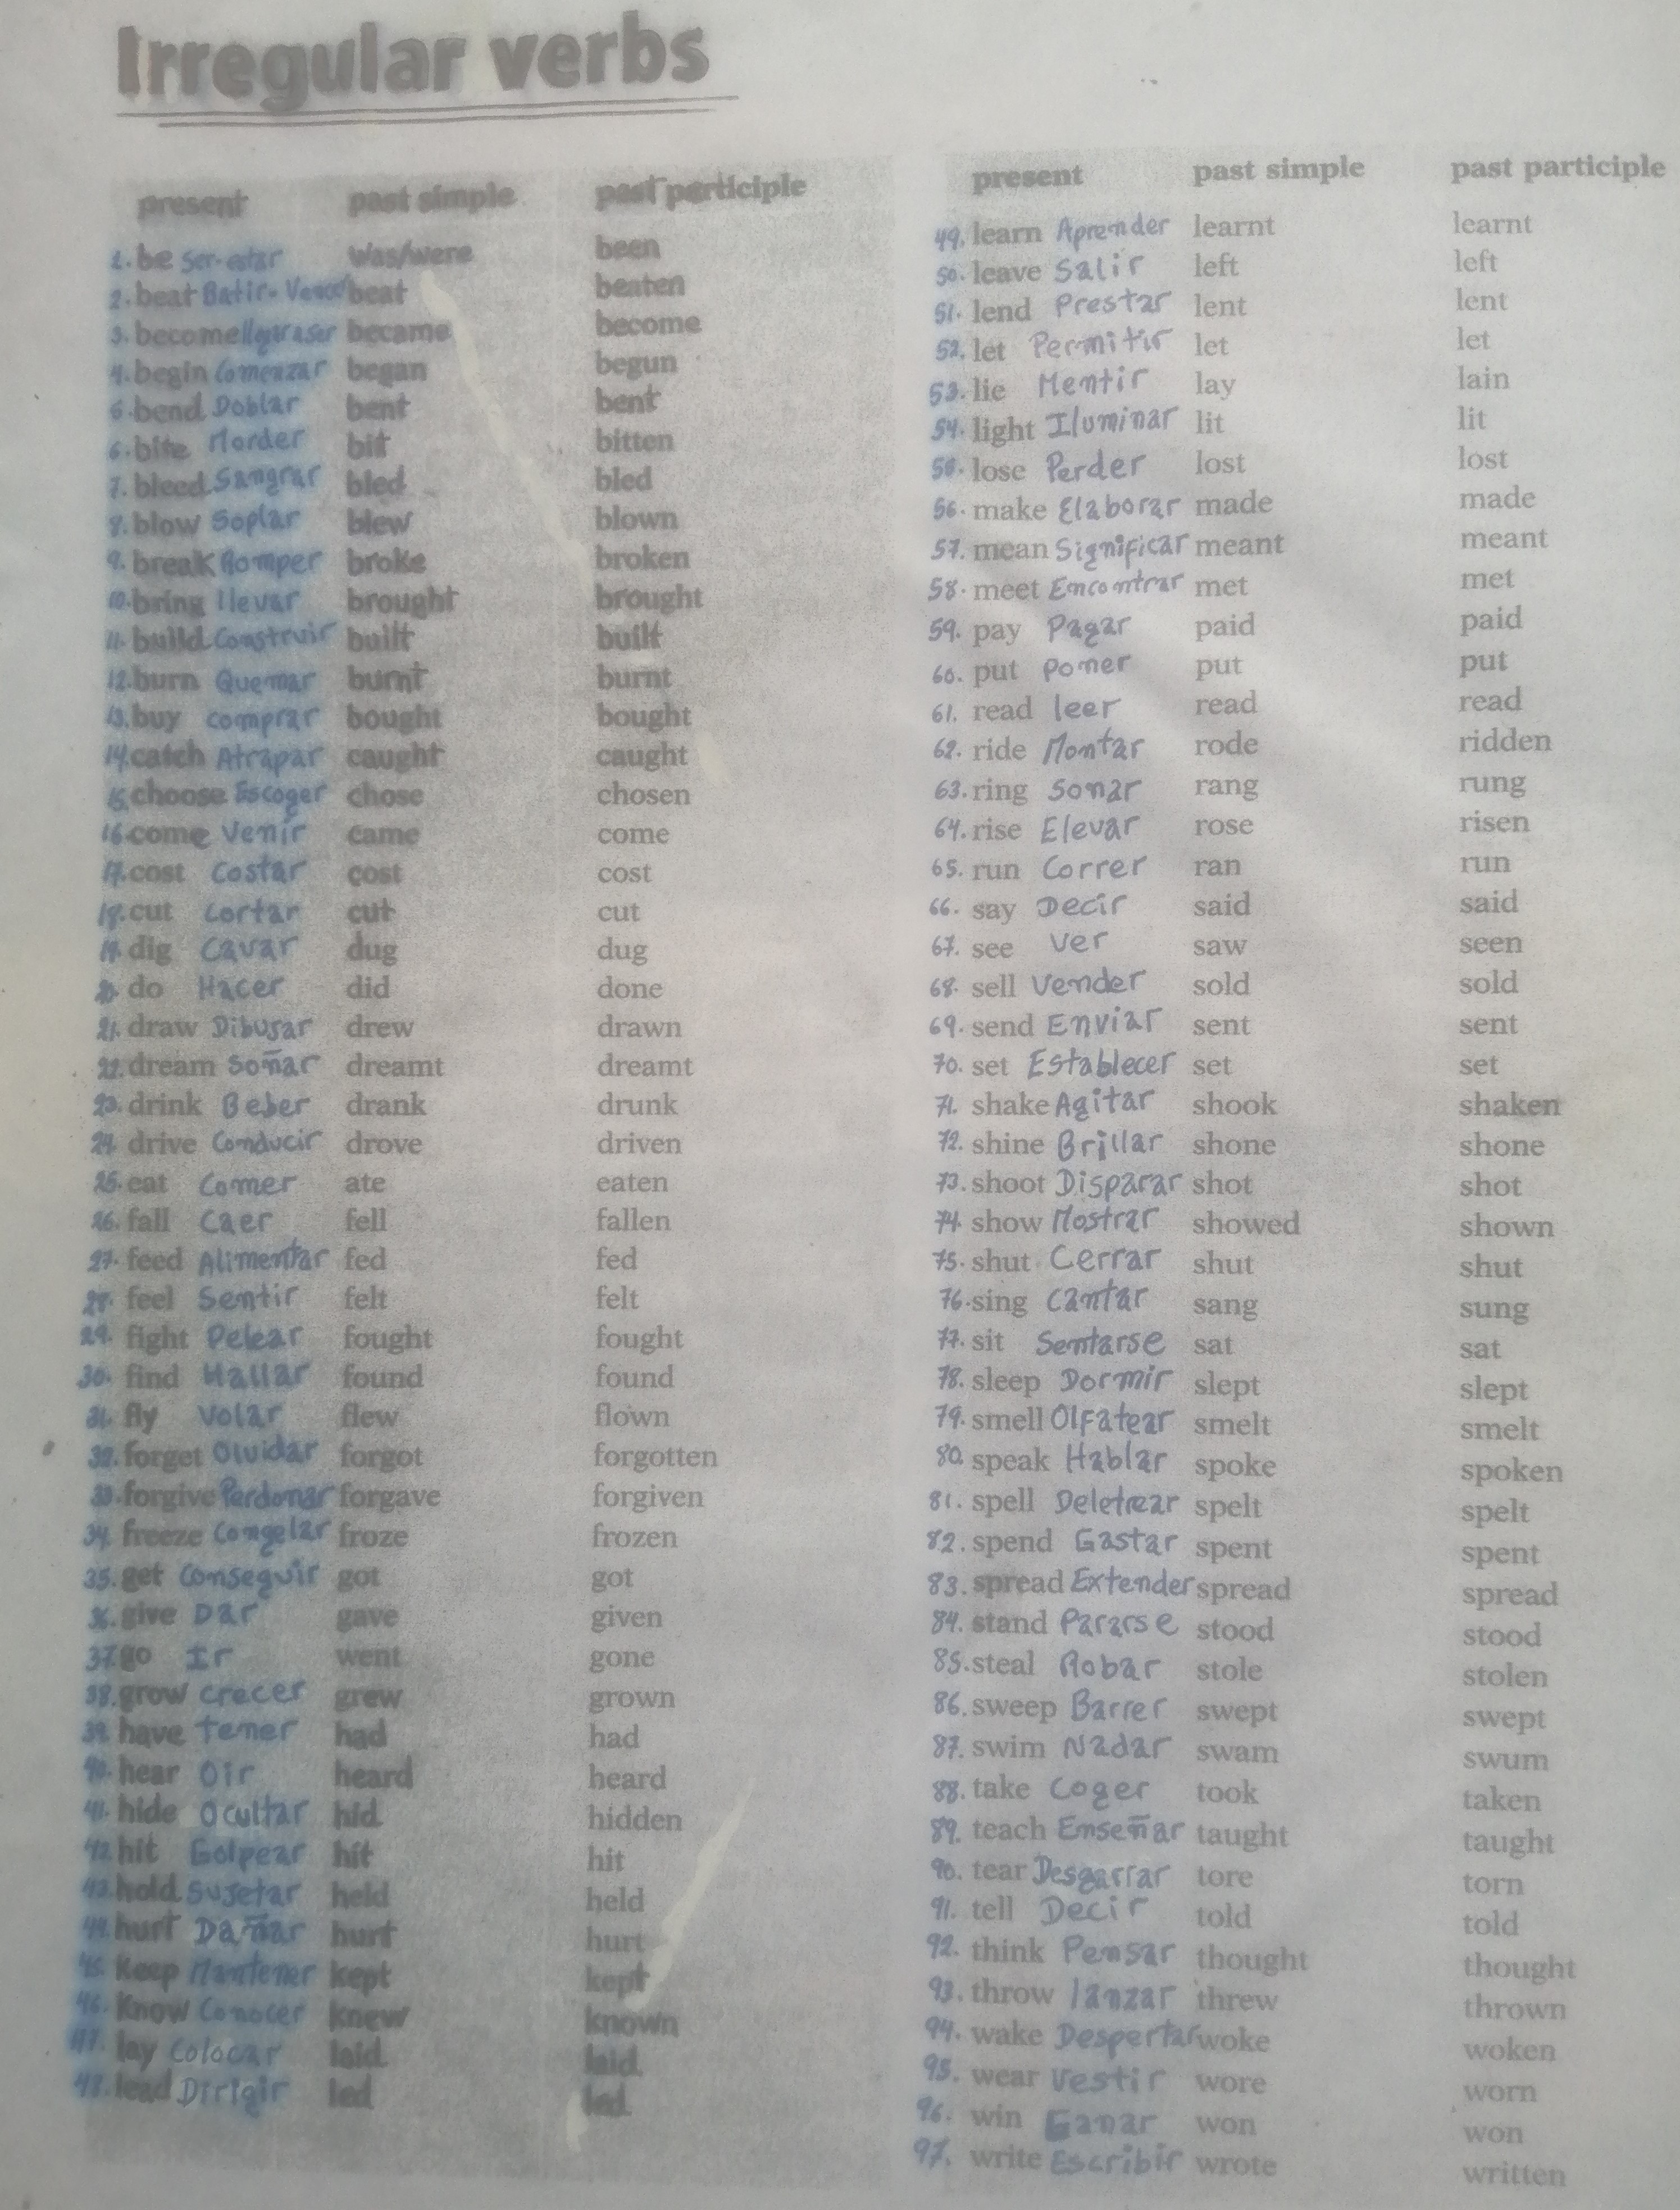 Irregular verbs
present past simple past participle
1. be Ser-estar was/were been
2. beat Batir-Vencer beat beaten
3. become became become
4. begin Comenzar began begun
5. bend Doblar bent bent
6. bite Morder bit bitten
7. bleed Sangrar bled bled
8. blow Soplar blew blown
9. break Romper broke broken
10. bring llevar brought brought
11. build Construir built built
12. burn Quemar burnt burnt
13. buy comprar bought bought
14. catch Atrapar caught caught
15. choose Escoger chose chosen
16. come Venir came come
17. cost Costar cost cost
18. cut Cortar cut cut
19. dig Cavar dug dug
20. do Hacer did done
21. draw Dibujar drew drawn
22. dream Soñar dreamt dreamt
23. drink Beber drank drunk
24. drive Conducir drove driven
25. eat Comer ate eaten
26. fall Caer fell fallen
27. feed Alimentar fed fed
28. feel Sentir felt felt
29. fight Pelear fought fought
30. find Hallar found found
31. fly Volar flew flown
32. forget Olvidar forgot forgotten
33. forgive Perdonar forgave forgiven
34. freeze Congelar froze frozen
35. get Conseguir got got
36. give Dar gave given
37. go Ir went gone
38. grow crecer grew grown
39. have tener had had
40. hear Oir heard heard
41. hide Ocultar hid hidden
42. hit Golpear hit hit
43. hold Sujetar held held
44. hurt Dañar hurt hurt
45. Keep Mantener kept kept
46. Know Conocer knew known
47. lay Colocar laid laid
48. lead Dirigir led led
present past simple past participle
49. learn Aprender learnt learnt
50. leave Salir left left
51. lend Prestar lent lent
52. let Permitir let let
53. lie Mentir lay lain
54. light Iluminar lit lit
55. lose Perder lost lost
56. make Elaborar made made
57. mean Significar meant meant
58. meet Encontrar met met
59. pay Pagar paid paid
60. put poner put put
61. read leer read read
62. ride Montar rode ridden
63. ring sonar rang rung
64. rise Elevar rose risen
65. run Correr ran run
66. say Decir said said
67. see ver saw seen
68. sell Vender sold sold
69. send Enviar sent sent
70. set Establecer set set
71. shake Agitar shook shaken
72. shine Brillar shone shone
73. shoot Disparar shot shot
74. show Mostrar showed shown
75. shut Cerrar shut shut
76. sing cantar sang sung
77. sit Sentarse sat sat
78. sleep Dormir slept slept
79. smell Olfatear smelt smelt
80. speak Hablar spoke spoken
81. spell Deletrear spelt spelt
82. spend Gastar spent spent
83. spread Extender spread spread
84. stand Pararse stood stood
85. steal Robar stole stolen
86. sweep Barrer swept swept
87. swim Nadar swam swum
88. take Coger took taken
89. teach Enseñar taught taught
90. tear Desgarrar tore torn
91. tell Decir told told
92. think Pensar thought thought
93. throw lanzar threw thrown
94. wake Despertar woke woken
95. wear Vestir wore worn
96. win Ganar won won
97. write Escribir wrote written